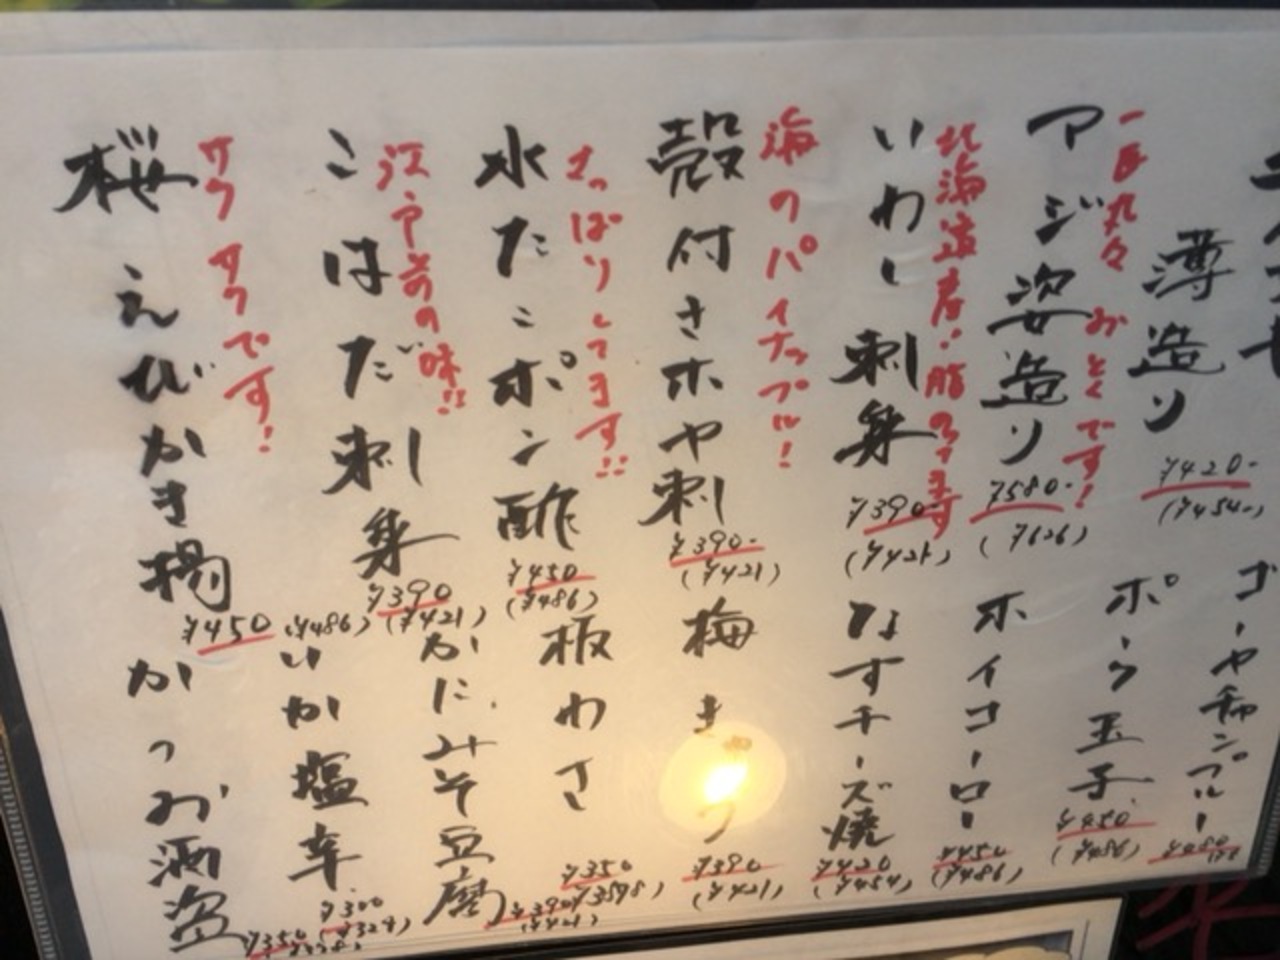 薄造り
¥420-
(¥454-)
一匹丸々 おとくです!
アジ姿造り
¥580-
(¥626)
北海道産!脂のってます
いわし刺身
¥390-
(¥421)
海のパイナップル!
殻付きホヤ刺
¥390-
(¥421)
さっぱりしてます!!
水たこポン酢
¥450
(¥486)
江戸前の味!!
こはだ刺身
¥390
(¥421)
サクサクです!
桜えびかき揚
¥450
(¥486)
ゴーヤチャンプルー
ポーク玉子
¥450
(¥486)
ホイコーロー
¥450
(¥486)
なすチーズ焼
¥420
(¥454)
梅きゅう
¥390
(¥421)
板わさ
¥350
かにみそ豆腐
¥390
(¥421)
いか塩辛
¥300
(¥324)
かつお酒盗
¥350